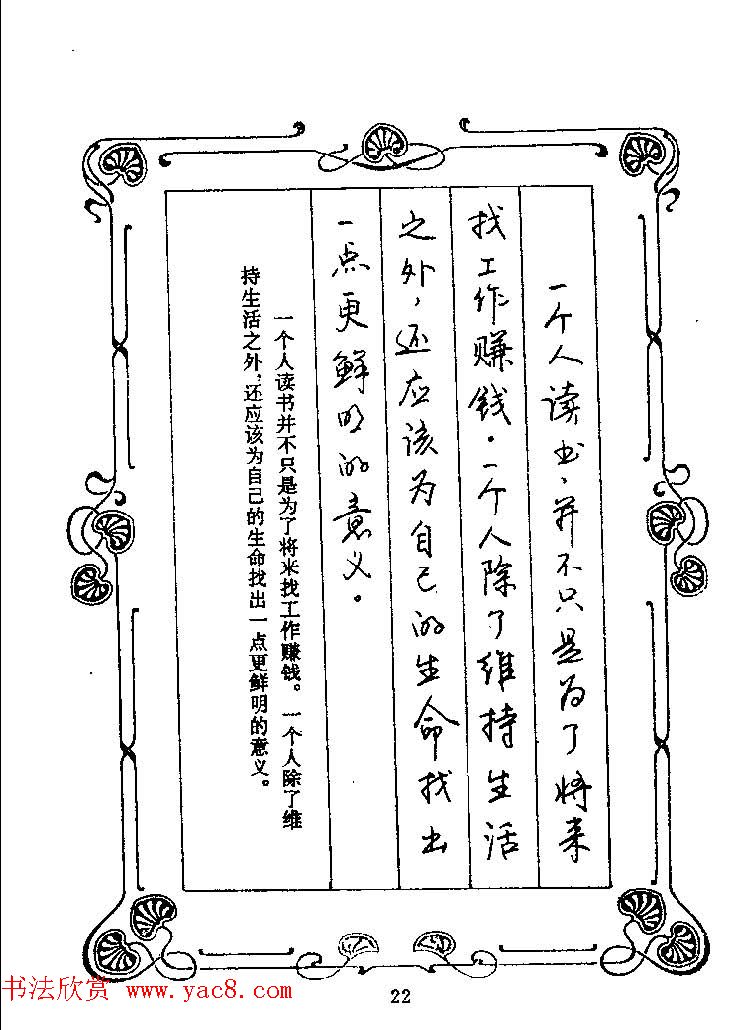 一个人读书、并不只是为了将来
找工作赚钱。一个人除了维持生活
之外，还应该为自己的生命找出
一点更鲜明的意义。
一个人读书并不只是为了将来找工作赚钱。一个人除了维
持生活之外，还应该为自己的生命找出一点更鲜明的意义。
书法欣赏 www.yac8.com
22